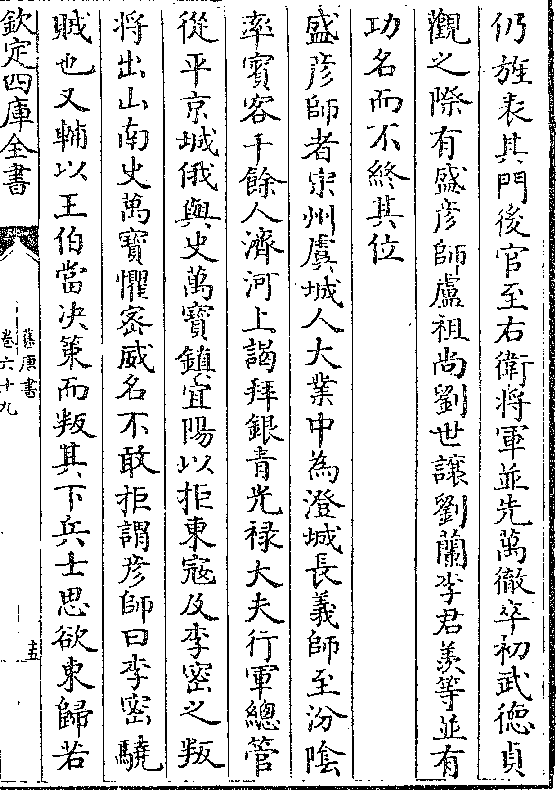 仍旌表其門後官至右衛將軍並先萬徹卒初武徳貞
觀之際有盛彦師盧祖尚劉世讓劉蘭李君羡等並有
功名而不終其位
盛彦師者宋州虞城人大業中為澄城長義師至汾陰
率賓客千餘人濟河上謁拜銀青光禄大夫行軍總管
從平京城俄與史萬寶鎮宜陽以拒東寇及李密之叛
將出山南史萬寶懼密威名不敢拒謂彦師曰李密驍
賊也又輔以王伯當決策而叛其下兵士思欲東歸若
欽定四庫全書
舊唐書
卷六十九